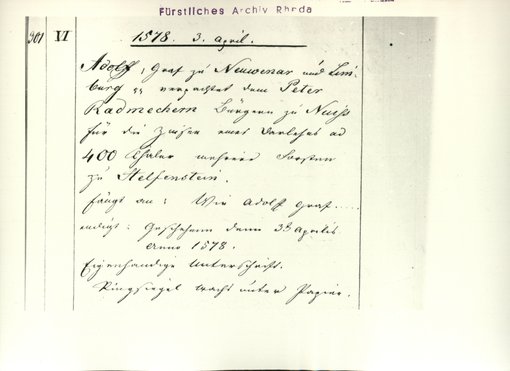 Fürstliches Archiv Rheda
301 VI 1578. 3. April.
Adolf, Graf zu Neuwenar und Lim-
burg verpachtet dem Peter
Radmechem Bürgern zu Nuiss
für die Zinsen eines Darlehns ad
400 Thaler mehrere Forsten
zu Helfenstein.
fängt an: Wir Adolf Graf.....
endigt: Geschehenn denn 3n Aprilis
Anno 1578.
Eigenhändige Unterschrift.
Ringsiegel Wachs unter Papier.